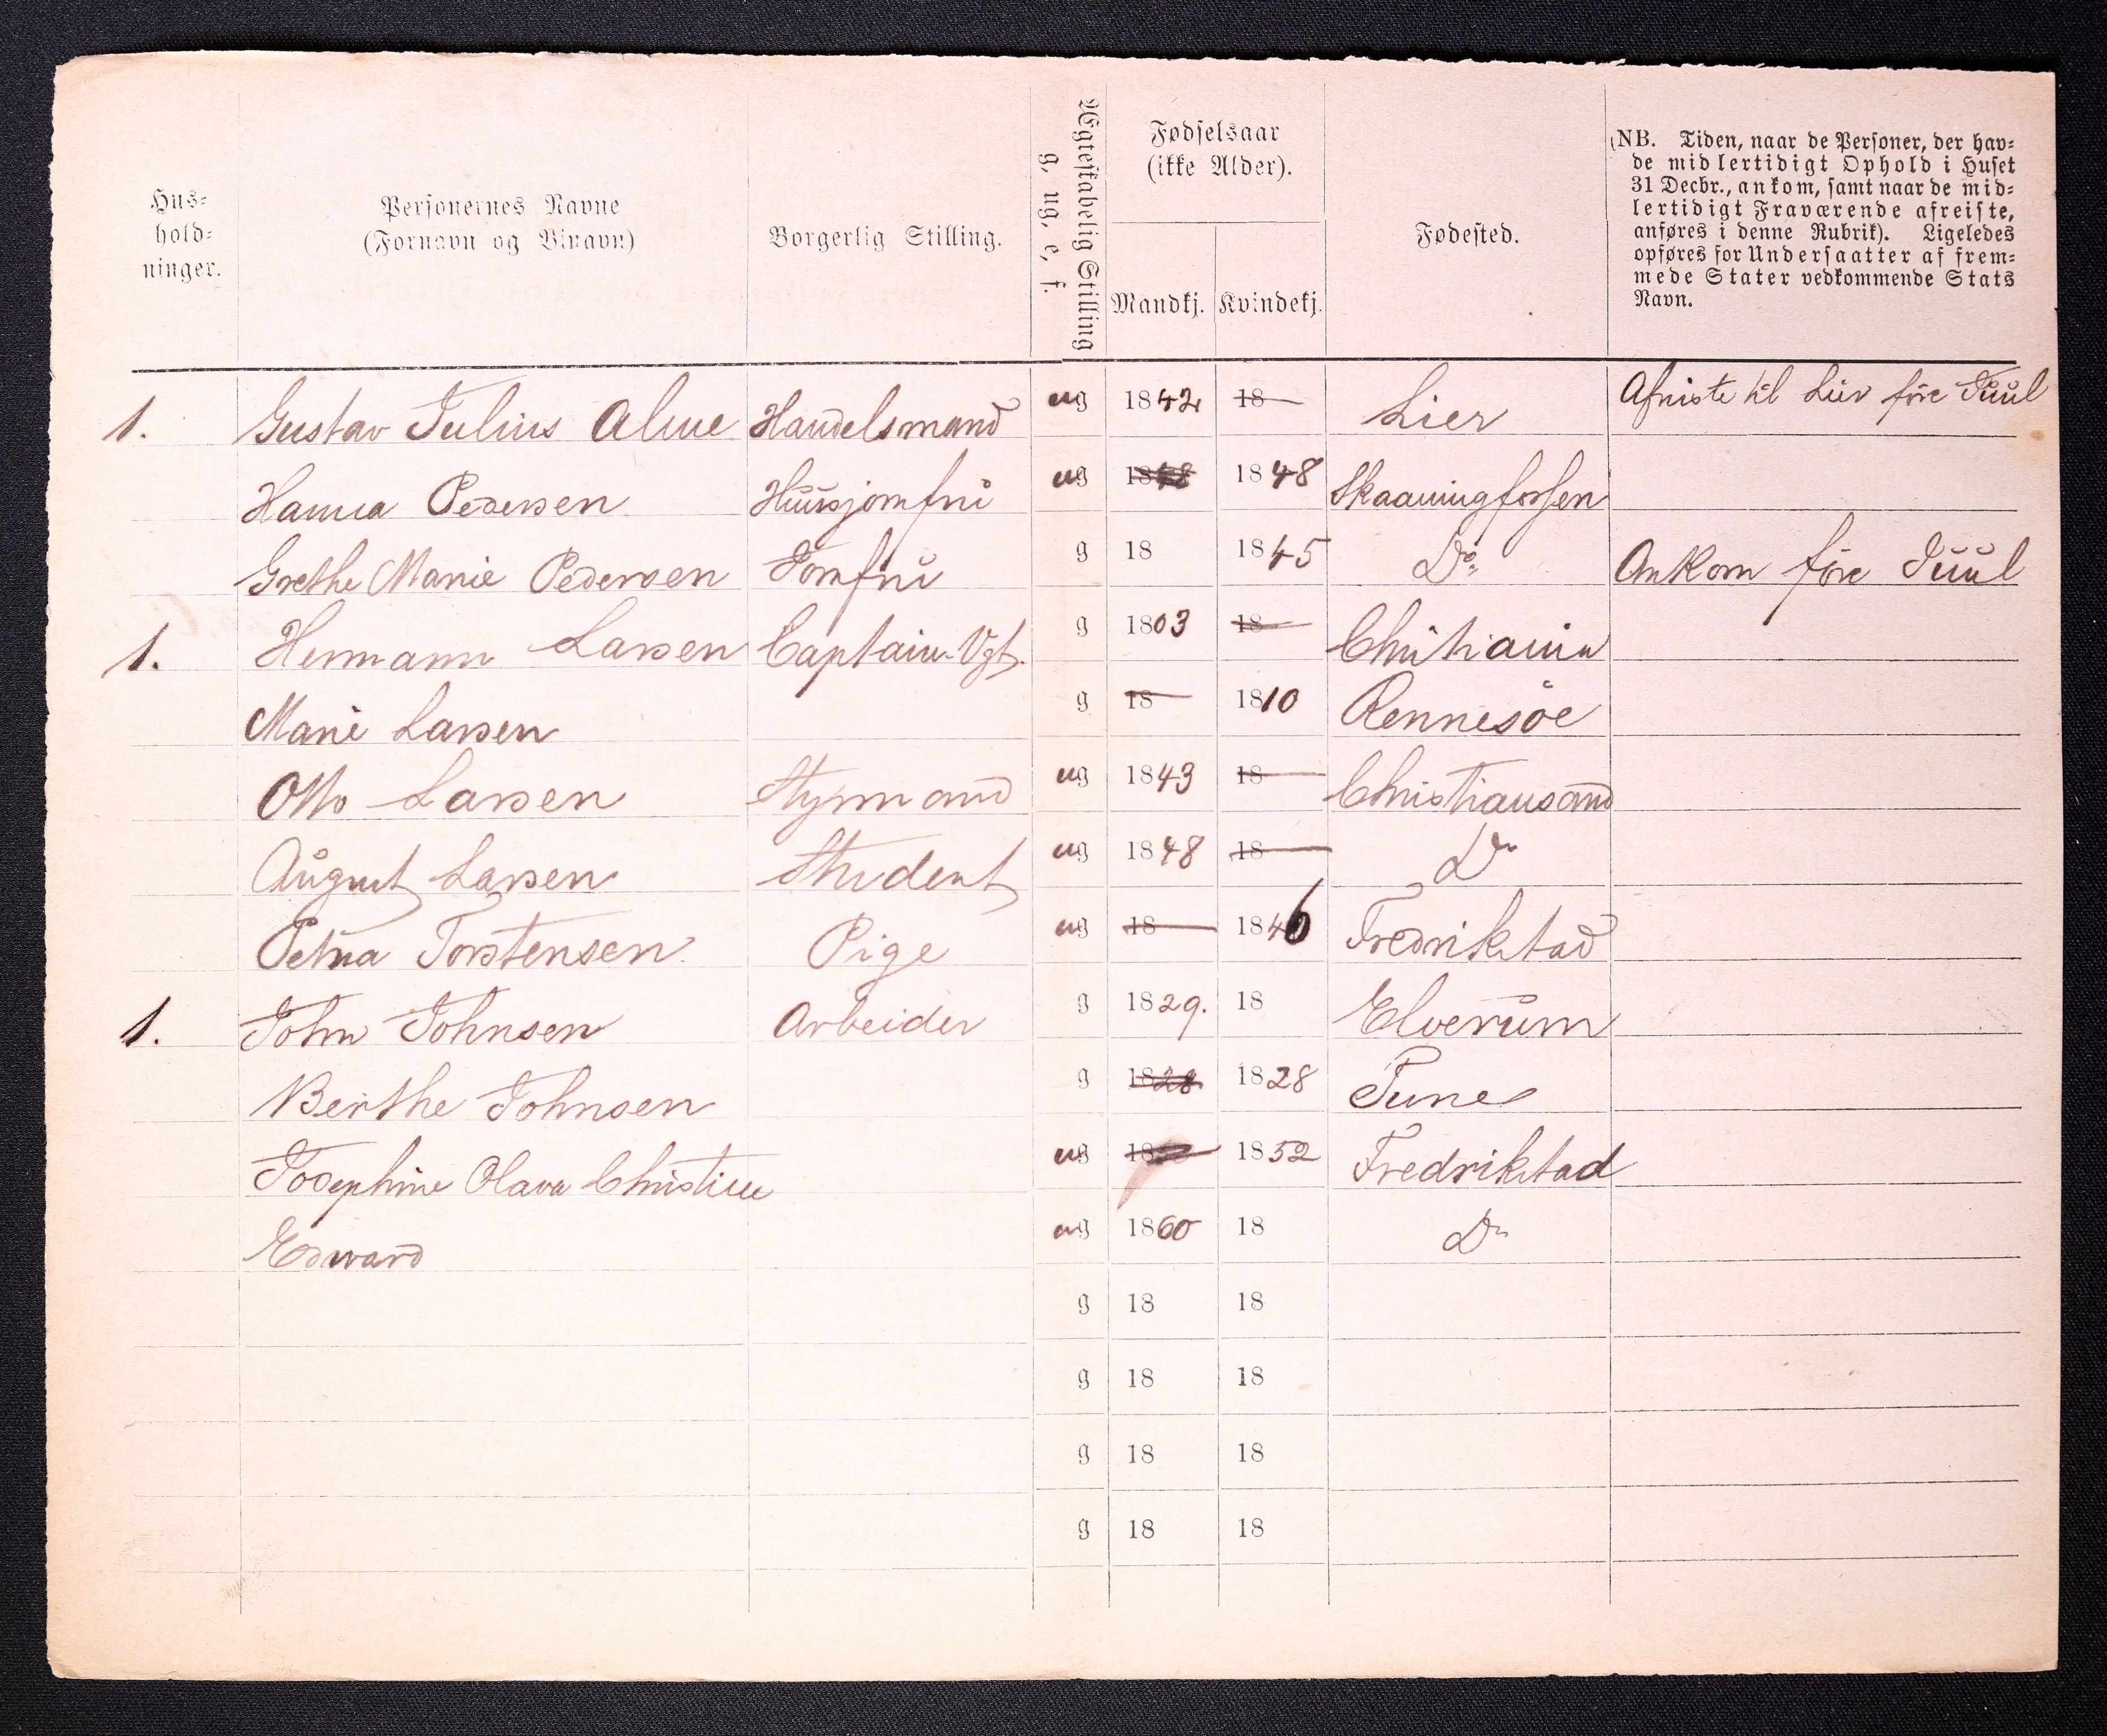 Hus-
hold-
ninger.
Personernes Navne
(Fornavn og Binavn)
Borgerlig Stilling.
Ægteskabelig Stilling
g, ug, e, f.
Fødselsaar
(ikke Alder).
Mandkj. Kvindekj.
Fødested.
(NB. Tiden, naar de Personer, der hav-
de midlertidigt Ophold i Huset
31 Decbr., ankom, samt naar de mid-
lertidigt Fraværende afreiste,
anføres i denne Rubrik). Ligeledes
opføres for Undersaatter af frem-
mede Stater vedkommende Stats
Navn.
1. Gustav Julius Alme Handelsmand ug 1842 18 Lier Afreiste til Lier före Juul
Hanna Pedersen Huusjomfru ug 1848 1848 Skaaningfossen
Grethe Marie Pedersen Jomfru g 18 1845 Do Ankom före Juul
1. Hermann Larsen Captain Vgt. g 1803 18 Christiania
Marie Larsen g 18 1810 Rennesöe
Otto Larsen Styrmand ug 1843 18 Christiansand
August Larsen Student ug 1848 18 Do
Petra Torstensen Pige ug 18 1846 Fredrikstad
1. John Johnsen Arbeider g 1829. 18 Elverum
Berthe Johnsen g 1828 1828 Tune
Josephine Olava Christine ug 18 1852 Fredrikstad
Edward ug 1860 18 Do
g 18 18
g 18 18
g 18 18
g 18 18